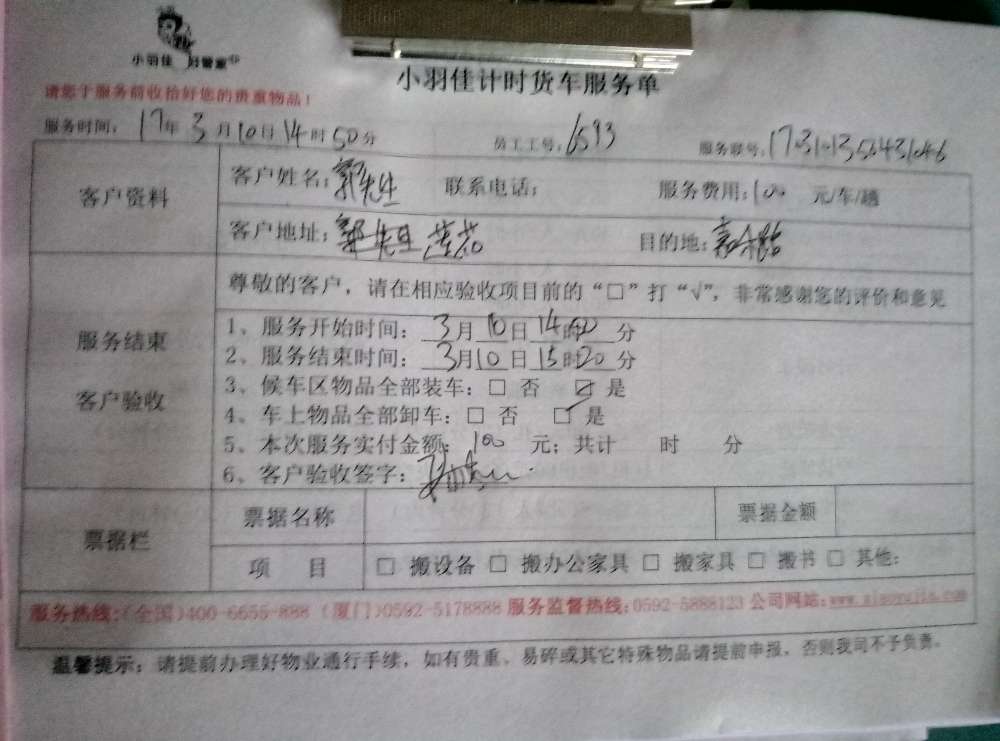 小羽佳 好管家
小羽佳计时货车服务单
请您于服务前收拾好您的贵重物品！
服务时间：17年3月10日14时50分 员工工号：6593 服务联号：
客户资料 客户姓名：郭先生 联系电话： 服务费用：100 元/车/趟
客户地址：郭先生莲花 目的地：
尊敬的客户，请在相应验收项目前的“□”打“√”，非常感谢您的评价和意见
服务结束
客户验收
1、服务开始时间：3月10日14时50分
2、服务结束时间：3月10日15时20分
3、候车区物品全部装车：□ 否 ☑ 是
4、车上物品全部卸车：□ 否 □ 是
5、本次服务实付金额：100 元；共计 时 分
6、客户验收签字：
票据栏 票据名称 票据金额
项 目 □ 搬设备 □ 搬办公家具 □ 搬家具 □ 搬书 □ 其他：
服务热线：(全国)400-6655-888 (厦门)0592-5178888 服务监督热线：0592-5888123 公司网站：
温馨提示：请提前办理好物业通行手续，如有贵重、易碎或其它特殊物品请提前申报，否则我司不予负责。